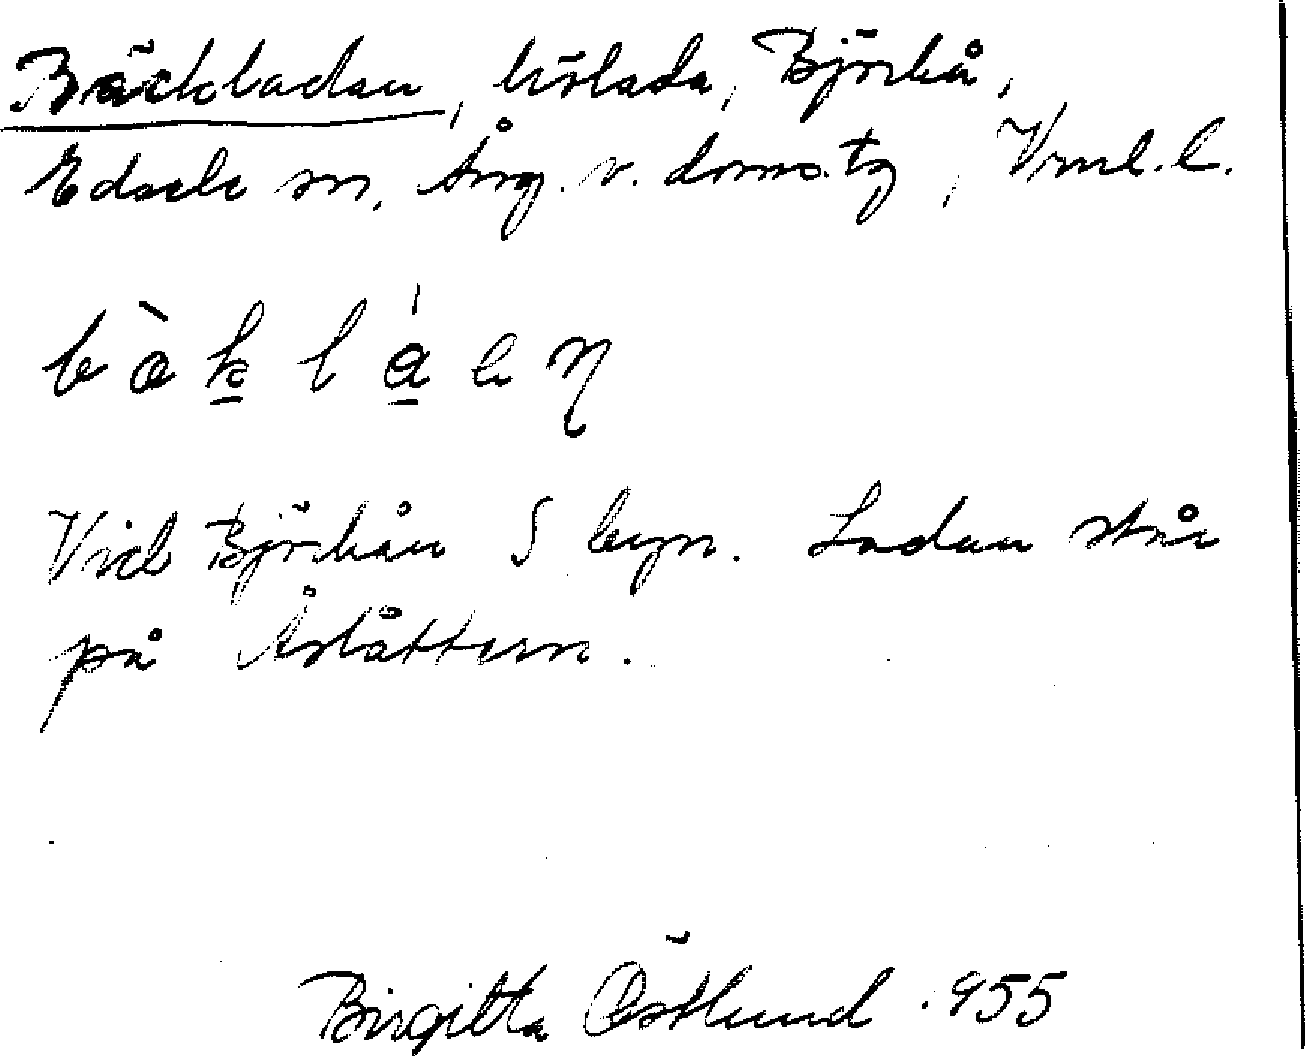 Bäckladan, hölada, Björkå,
Edsele sn, Ång. v. doms. tg, Vrml. l.
b à k l á e n
Vid Björkån S byn. Ladan står
på Åslåttern.
Birgitta Östlund 1955